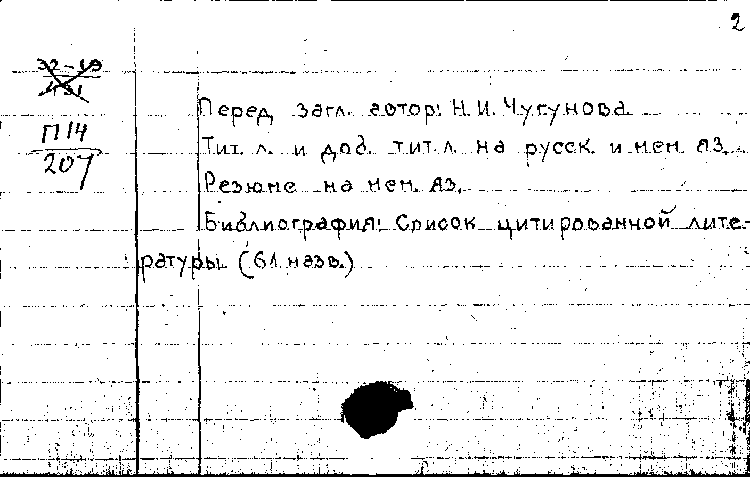 2
32-19
П14
207
Перед загл. автор: Н.И. Чугунова
Тит. л. и доб. тит. л. на русск. и нем. яз.
Резюме на нем. яз.
Библиография: Список цитированной лите-
ратуры (61 назв.)